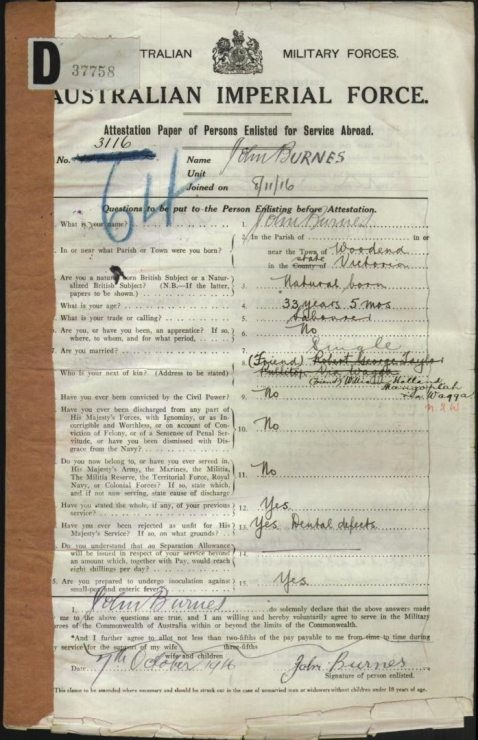 D 37758
TRALIAN MILITARY FORCES.
AUSTRALIAN IMPERIAL FORCE.
Attestation Paper of Persons Enlisted for Service Abroad.
No. 3116
64
Name John BURNES
Unit
Joined on 8/11/16
Questions to be put to the Person Enlisting before Attestation.
What is your name? 1. John Burnes
In or near what Parish or Town were you born? 2. In the Parish of in or
near the Town of Woodend
state
in the County of Victoria
Are you a natural born British Subject or a Natur-
alized British Subject? (N.B.—If the latter,
papers to be shown.) 3. Natural born
What is your age? 4. 33 years 5 mos
What is your trade or calling? 5. Labourer
Are you, or have you been, an apprentice? If so,
where, to whom, and for what period. 6. No
Are you married? 7. Single
Who is your next of kin? (Address to be stated) 8. (Friend) Robert George Taylor
Pullitop Via Wagga
Friend
Mangoplah
via Wagga
N.S.W
Have you ever been convicted by the Civil Power? 9. No
Have you ever been discharged from any part of
His Majesty's Forces, with Ignominy, or as In-
corrigible and Worthless, or on account of Con-
viction of Felony, or of a Sentence of Penal Ser-
vitude, or have you been dismissed with Dis-
grace from the Navy? 10. No
Do you now belong to, or have you ever served in,
His Majesty's Army, the Marines, the Militia,
The Militia Reserve, the Territorial Force, Royal
Navy, or Colonial Forces? If so, state which,
and if not now serving, state cause of discharge 11. No
Have you stated the whole, if any, of your previous
service? 12. Yes
Have you ever been rejected as unfit for His
Majesty's Service? If so, on what grounds? 13. Yes. Dental defects
Do you understand that no Separation Allowance
will be issued in respect of your service beyond
an amount which, together with Pay, would reach
eight shillings per day? 14.
Are you prepared to undergo inoculation against
small-pox and enteric fever? 15. Yes.
I, John Burnes do solemnly declare that the above answers made
me to the above questions are true, and I am willing and hereby voluntarily agree to serve in the Military
rces of the Commonwealth of Australia within or beyond the limits of the Commonwealth.
*And I further agree to allot not less than two-fifths of the pay payable to me from time to time during
three-fifths
y service for the support of my wife
wife and children
Date 7th October 1916 John Burnes
Signature of person enlisted.
This clause to be amended where necessary and should be struck out in the case of unmarried men or widowers without children under 18 years of age.